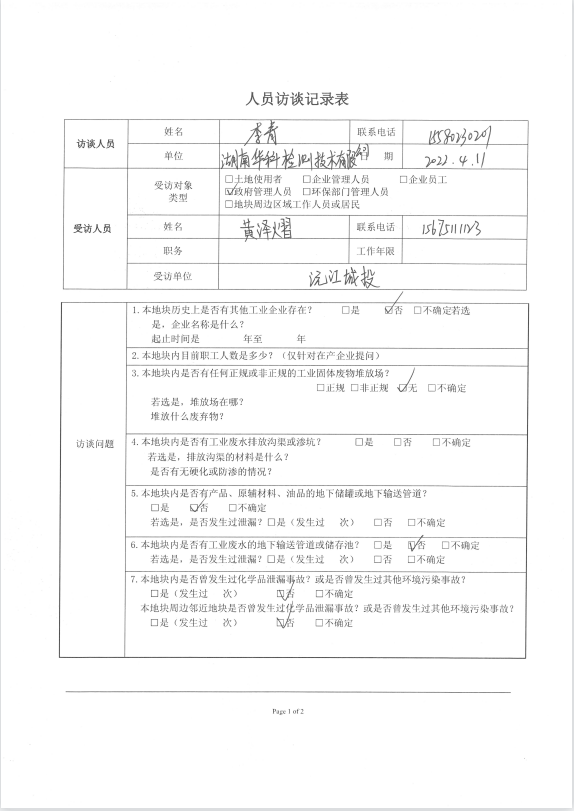 人员访谈记录表
访谈人员 姓名 李青 联系电话 15580230201
单位 湖南华科检测技术有限公司 日期 2022.4.11
受访人员 受访对象类型 □土地使用者 □企业管理人员 □企业员工
☑政府管理人员 □环保部门管理人员
□地块周边区域工作人员或居民
姓名 黄泽熠 联系电话
职务 工作年限
受访单位 沅江城投
访谈问题
1.本地块历史上是否有其他工业企业存在? □是 ☑否 □不确定若选
是,企业名称是什么?
起止时间是 年至 年
2.本地块内目前职工人数是多少?(仅针对在产企业提问)
3.本地块内是否有任何正规或非正规的工业固体废物堆放场?
□正规 □非正规 ☑无 □不确定
若选是,堆放场在哪?
堆放什么废弃物?
4.本地块内是否有工业废水排放沟渠或渗坑? □是 □否 □不确定
若选是,排放沟渠的材料是什么?
是否有无硬化或防渗的情况?
5.本地块内是否有产品、原辅材料、油品的地下储罐或地下输送管道?
□是 ☑否 □不确定
若选是,是否发生过泄漏?□是(发生过 次) □否 □不确定
6.本地块内是否有工业废水的地下输送管道或储存池? □是 ☑否 □不确定
若选是,是否发生过泄漏?□是(发生过 次) □否 □不确定
7.本地块内是否曾发生过化学品泄漏事故?或是否曾发生过其他环境污染事故?
□是(发生过 次) ☑否 □不确定
本地块周边邻近地块是否曾发生过化学品泄漏事故?或是否曾发生过其他环境污染事故?
□是(发生过 次) ☑否 □不确定
Page 1 of 2